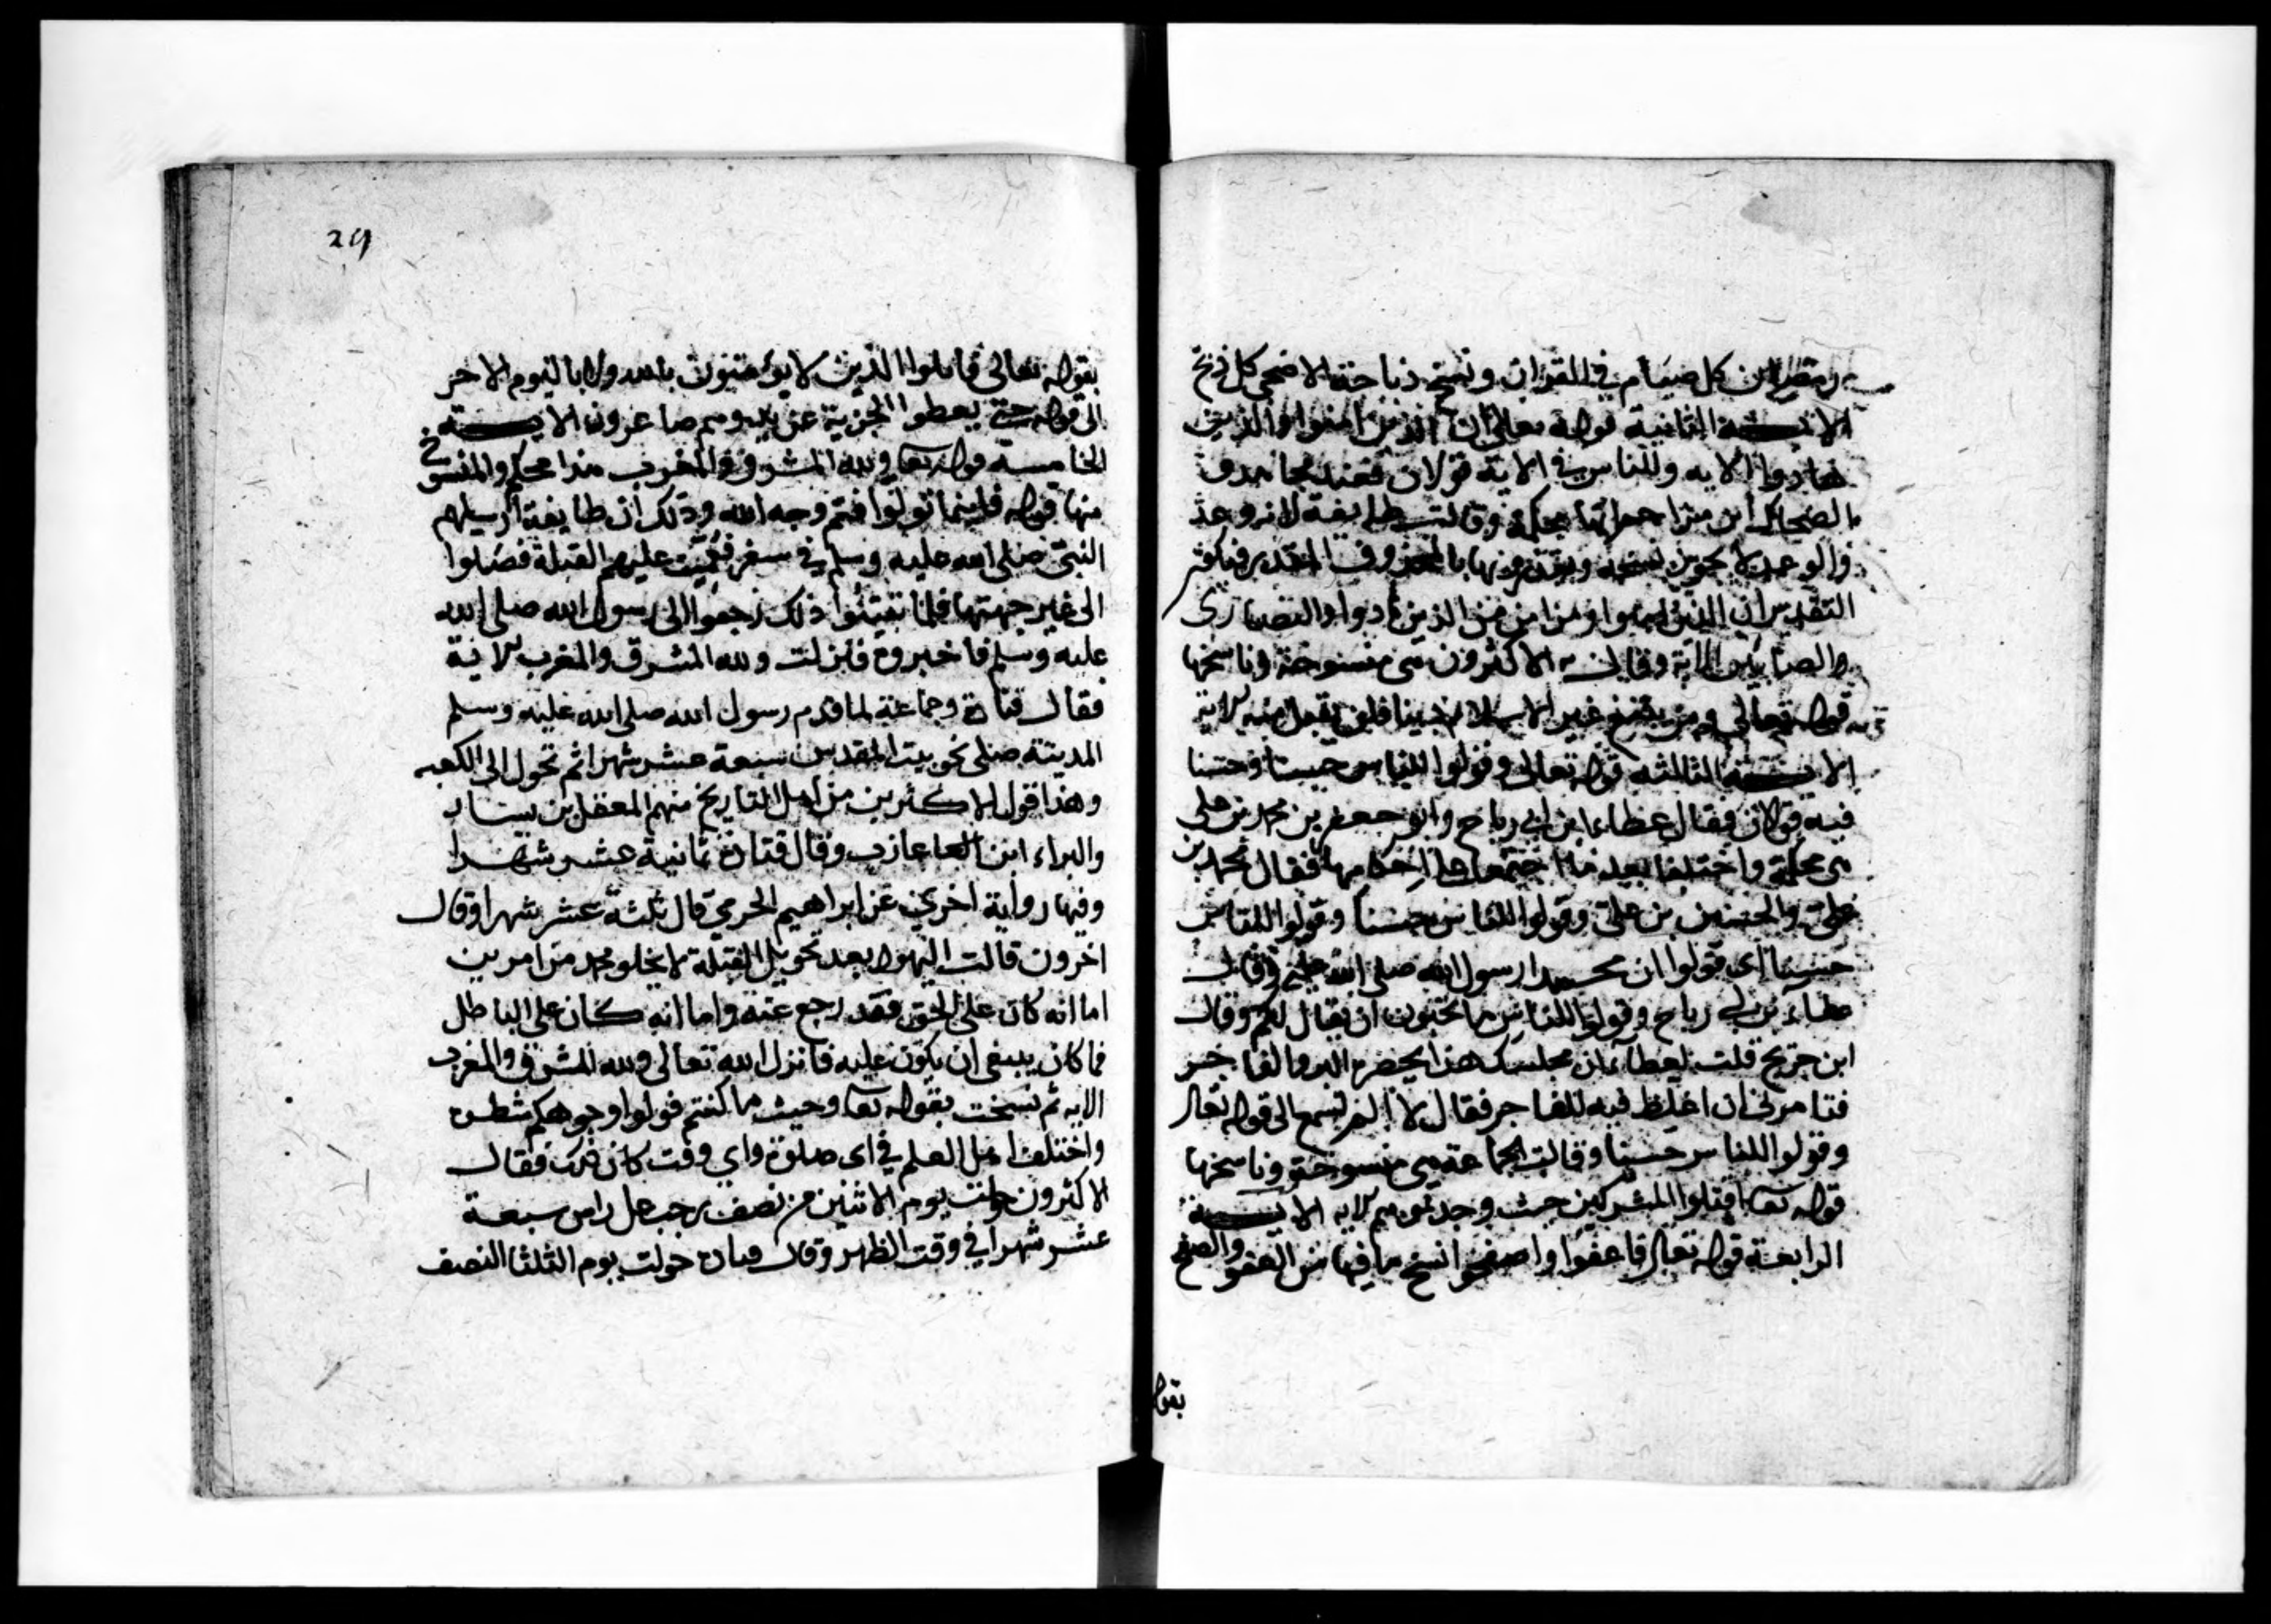 رمضان كل صيام في القران ونسخ ذباحة الاضحى كل ذبح
الايــــة الثانية قوله تعالى ان الذين امنوا والذين
هادوا الايه وللناس في الاية قولان فعند مجاهد و
الضحاك ابن مزاحم انها محكمة وقالت طايفة
التقدير ان الذين امنوا ومن امن من الذين هادوا والنصارى
والصابئين الاية وقال الاكثرون هي منسوخة وناسخها
قوله تعالى ومن يبتغ غير الاسلام دينا فلن يقبل منه الاية
الايــــة الثالثه قوله تعالى وقولوا للناس حسنا وحسنا
فيه قولان فقال عطاء ابن ابي رباح وابو جعفر بن محمد بن علي
هي محكمة واختلفا بعد ما اجتمعا على احكامها فقال محمد بن
علي والحسين بن علي وقولوا للناس حسنا وقولوا للناس
حسنا اى قولوا ان محمدا رسول الله صلى الله عليه وقال
عطاء بن ابي رباح وقولوا للناس ما تحبون ان يقال لكم وقال
ابن جريج قلت لعطاء ان مجلسك هذا يحضره البر والفاجر
فتامرني ان اغلظ فيه للفاجر فقال لا الم تسمع الى قوله تعالى
وقولوا للناس حسنا وقالت الجماعة هي منسوخة وناسخها
قوله تعا اقتلوا المشركين حيث وجدتموهم الايه الايــــة
الرابعة قوله تعالى فاعفوا واصفحوا نسخ ما فيها من العفو والصفح
بقوله
29
بقوله تعالى قاتلوا الذين لا يؤمنون بالله ولا باليوم الاخر
الى قوله حتى يعطوا الجزية عن يد وهم صاغرون الايــــة
الخامسة قوله تعا ولله المشرق والمغرب هذا محكم والمنسوخ
منها قوله فاينما تولوا فثم وجه الله وذلك ان طايفة ارسلهم
النبي صلى الله عليه وسلم في سفر فعميت عليهم القبلة فصلوا
الى غير جهتها فلما تبينوا ذلك رجعوا الى رسول الله صلى الله
عليه وسلم فاخبروه فانزلت ولله المشرق والمغرب الاية
فقال قتادة وجماعة لما قدم رسول الله صلى الله عليه وسلم
المدينة صلى نحو بيت المقدس سبعة عشر شهرا ثم تحول الى الكعبه
وهذا قول الاكثرين من اهل التاريخ منهم المعقل بن يسار
والبراء ابن العاعازب وقال قتادة ثمانية عشر شهرا
وفيها رواية اخرى عن ابراهيم الحربي قال ثلثة عشر شهرا وقال
اخرون قالت اليهود بعد تحويل القبلة لا يخلو محمد من امرين
اما انه كان على الحق فقد رجع عنه واما انه كان على الباطل
فما كان ينبغى ان يكون عليه فانزل الله تعالى ولله المشرق والمغرب
الايه ثم نسخت بقوله تعا وحيث ما كنتم فولوا وجوهكم شطره
واختلف اهل العلم في اى صلوة واي وقت كان ذلك فقال
الاكثرون حولت يوم الاثنين من نصف رجب على راس سبعة
عشر شهرا في وقت الظهر وقال قتادة حولت يوم الثلثا النصف